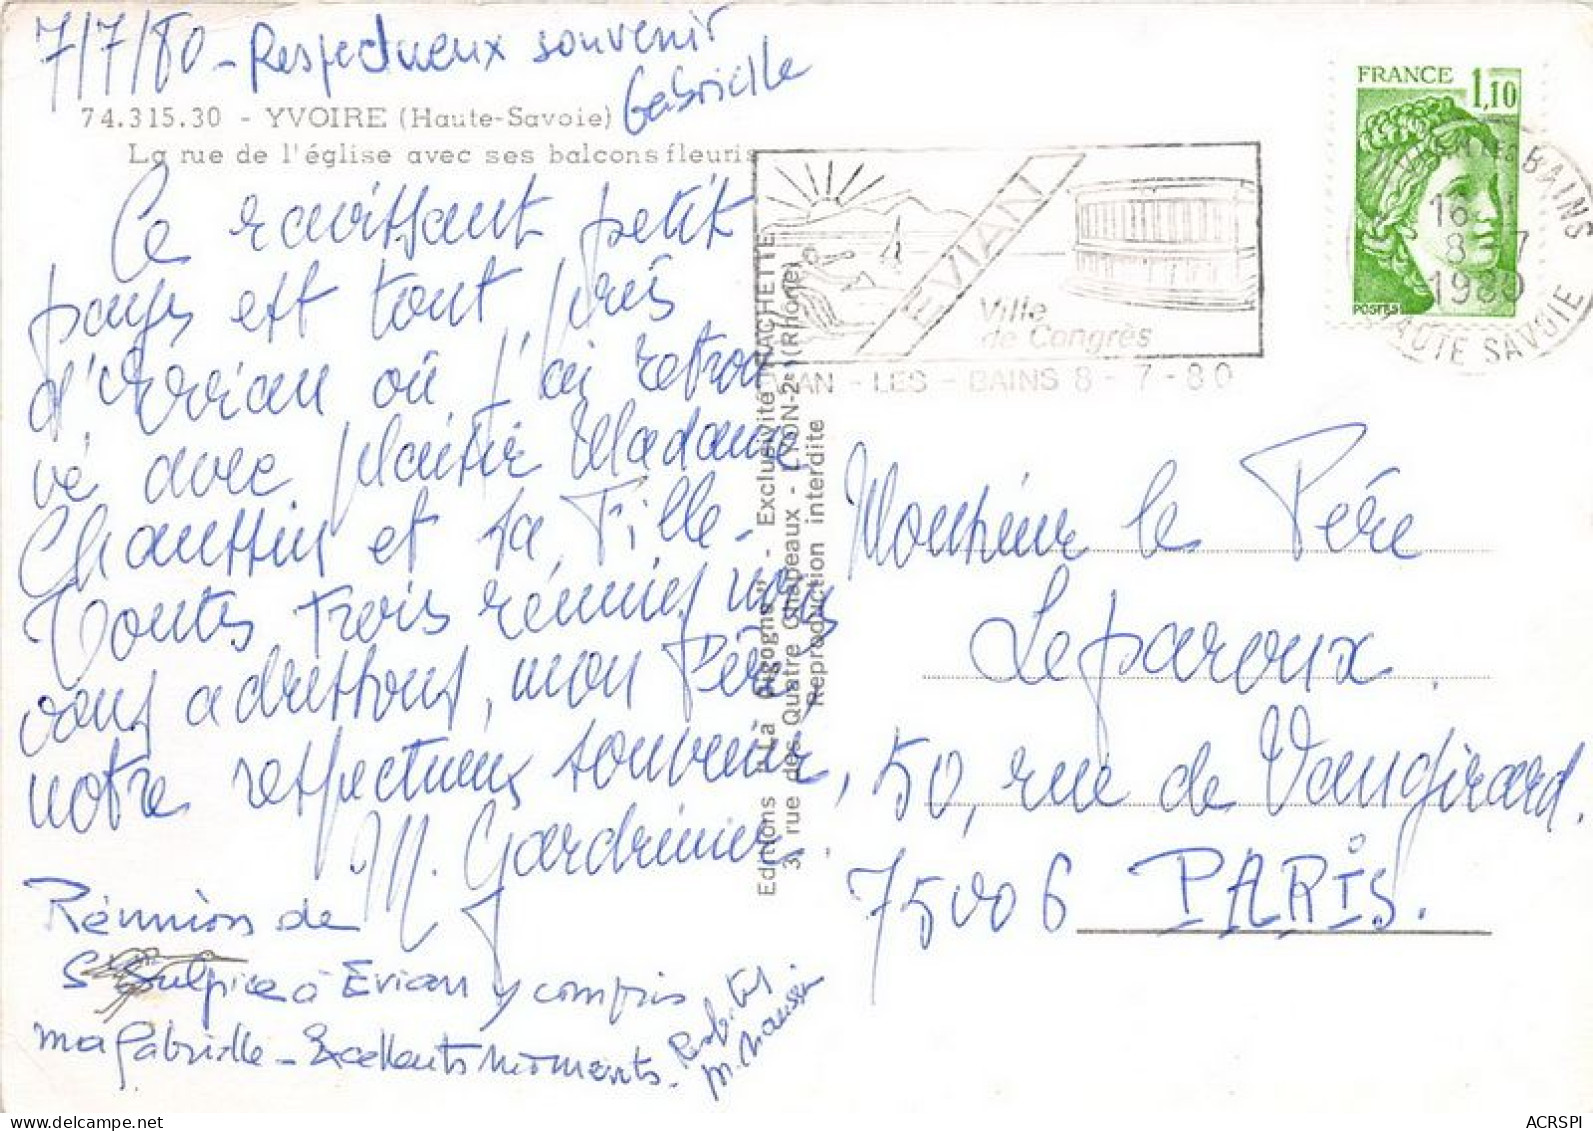 7/7/80 - Respectueux souvenir
Gabrielle
74.315.30 - YVOIRE (Haute-Savoie)
La rue de l'église avec ses balcons fleuris
Ce ravissant petit
pays est tout près
d'Evian où j'ai retrou
vé avec plaisir Madame
Chaussin et sa Fille.
Toutes trois réunies nous
vous adressons, mon Père
notre respectueux souvenir,
M. Gardrinier
Réunion de
St Sulpice à Evian y compris
ma Gabrielle - Excellents moments.
M. Chaussin
Editions "La Cigogne" - Exclusivité HACHETTE
3, rue des Quatre Chapeaux - LYON-2e (Rhône)
Reproduction interdite
FRANCE
1,10
POSTES
EVIAN
Ville
de Congrès
VIAN - LES - BAINS 8 - 7 - 80
BAINS
16
8 - 7
1980
HAUTE SAVOIE
Monsieur le Père
Leparoux.
50, rue de Vaugirard.
75006 PARIS.
delcampe.net
ACRSPI